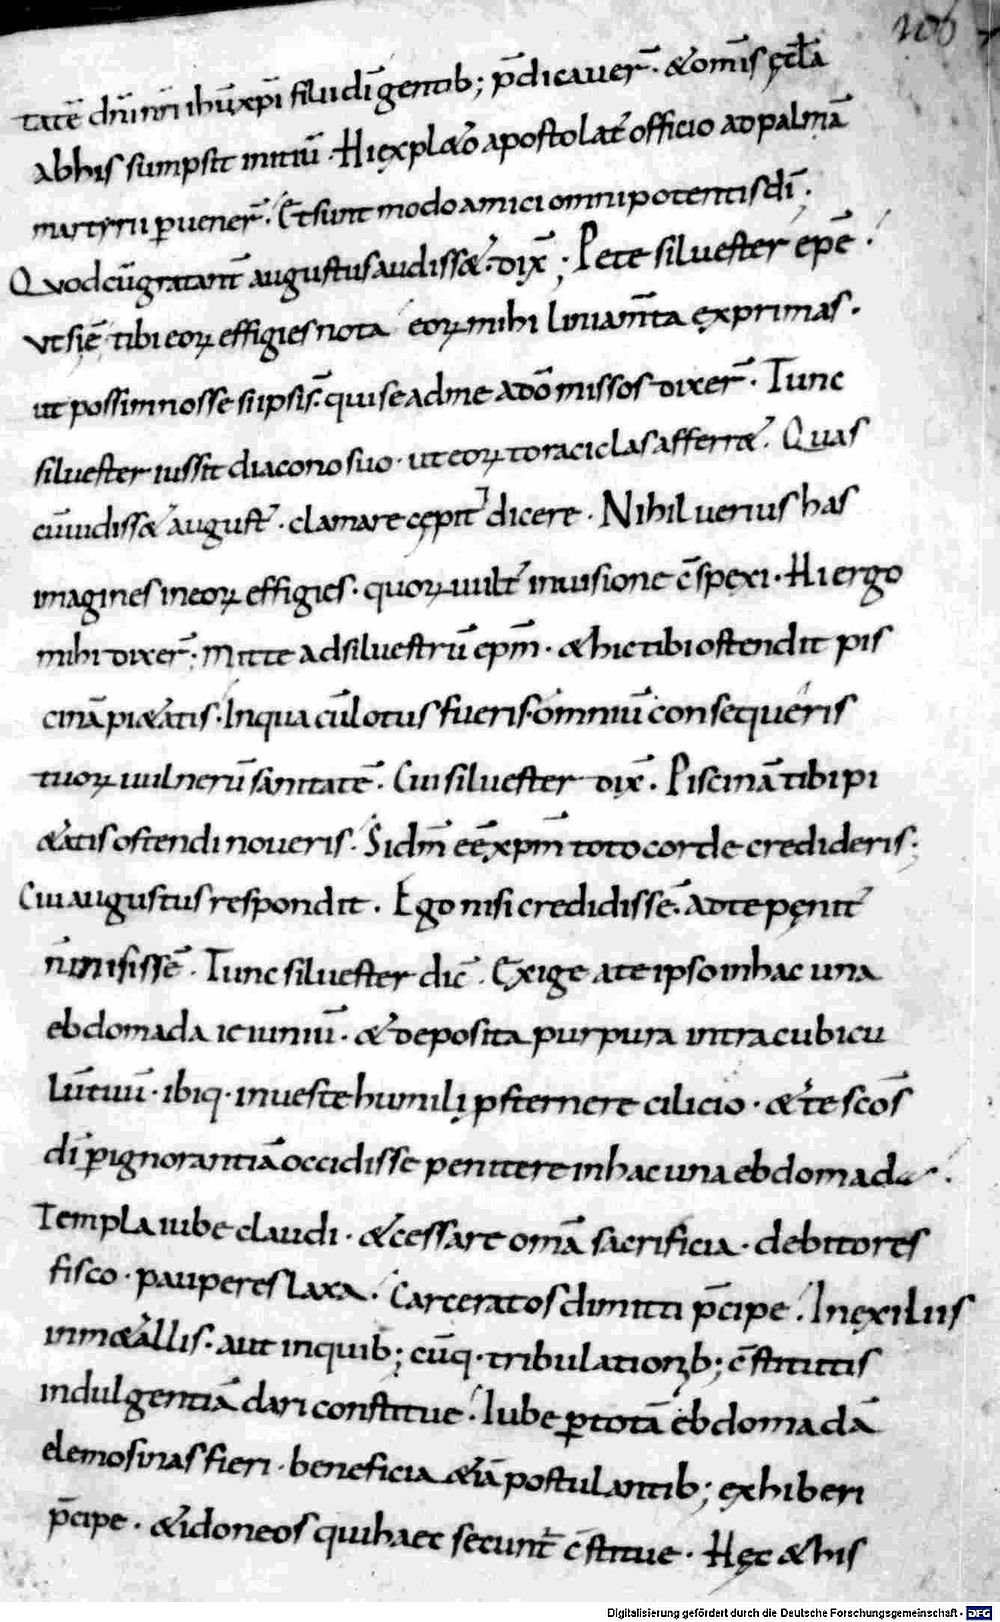 106
tatē dn̄i nr̄i ihū xp̄i filii dī gentib; p̄dicauer̄. &omīs ęccl̄a
abhis sumpsit initiū. Hi expl&o apostolat᷒ officio adpalmā
martyrii ꝑuener̄. Et sunt modo amici omnipotentis dī.
Quodcū gratant᷒ augustus audiss&. dix̄; Pete siluester ep̄e.
Vt siē tibi eoꝝ effigies nota eoꝝ mihi liniam̄ta exprimas.
ut possim nosse si ipsi s̄. qui se adme a dō missos dixer̄. Tunc
siluester iussit diacono suo. ut eoꝝ toraciclas afferr&. Quas
cū uidiss& august᷒. clamare cępit ⁊ dicere. Nihil uerius has
imagines in eoꝝ effigies. quoꝝ uult᷒ in uisione c̄spexi. Hi ergo
mihi dixer̄; mitte ad siluestrū ep̄m. & hic tibi ostendit pis
cinā pi&atis. In qua cū lotus fueris. omniū consequeris
tuoꝝ uulnerū sanitatē. Cui siluester dix̄. Piscinā tibi pi
&atis ostendi noueris. Si dm̄ eē xp̄m toto corde credideris;
Cui augustus respondit. Ego nisi credidissē. ad te pęnit᷒
n̄ misissē. Tunc siluester dic̄. Exige a te ipso in hac una
ebdomada ieiuniū. & deposita purpura intra cubicu
lū tuū. ibiq. in ueste humili ꝓsternere cilicio. & te scōs
dī ꝑ ignorantiā occidisse penitere in hac una ebdomada.
Templa iube claudi. & cessare om̄a sacrificia. debitores
fisco. pauperes laxa. Carceratos dimitti p̄cipe. In exiliis
in m&allis. aut in quib; cūq. tribulationib; c̄stitutis
indulgentiā dari constitue. Iube ꝑ totā ebdomadā
elemosinas fieri. beneficia &iā postulantib; exhiberi
p̄cipe. & idoneos qui haec secunt᷒ c̄stitue. Hęc & his
Digitalisierung gefördert durch die Deutsche Forschungsgemeinschaft - DFG